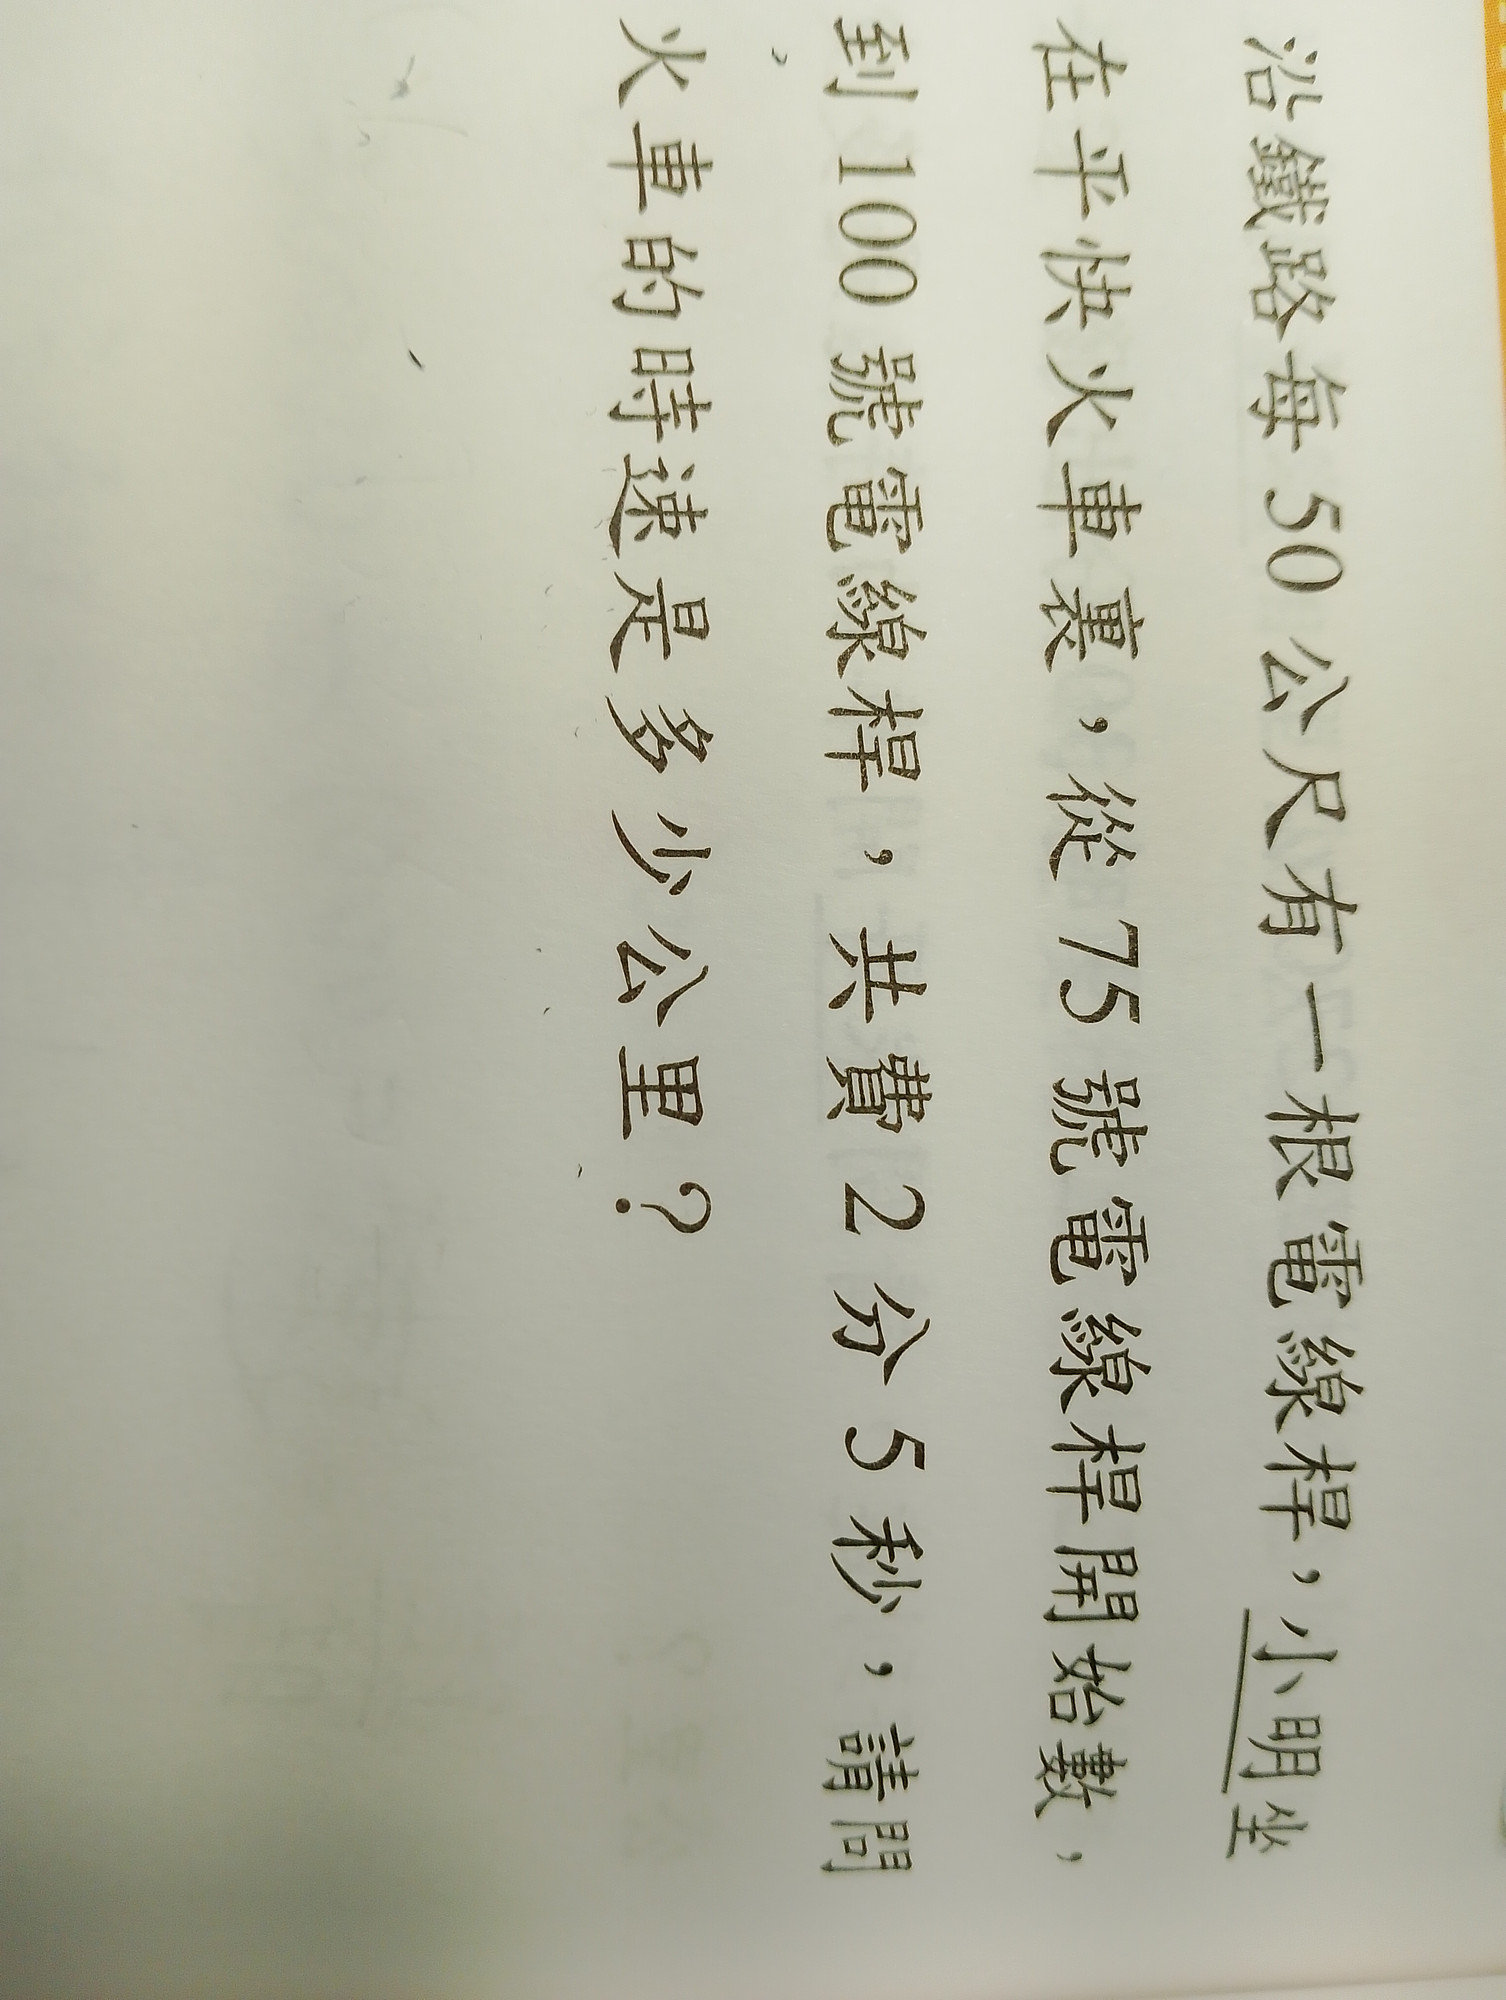 沿鐵路每 50 公尺有一根電線桿，小明坐
在平快火車裏，從 75 號電線桿開始數，
到 100 號電線桿，共費 2 分 5 秒，請問
火車的時速是多少公里？